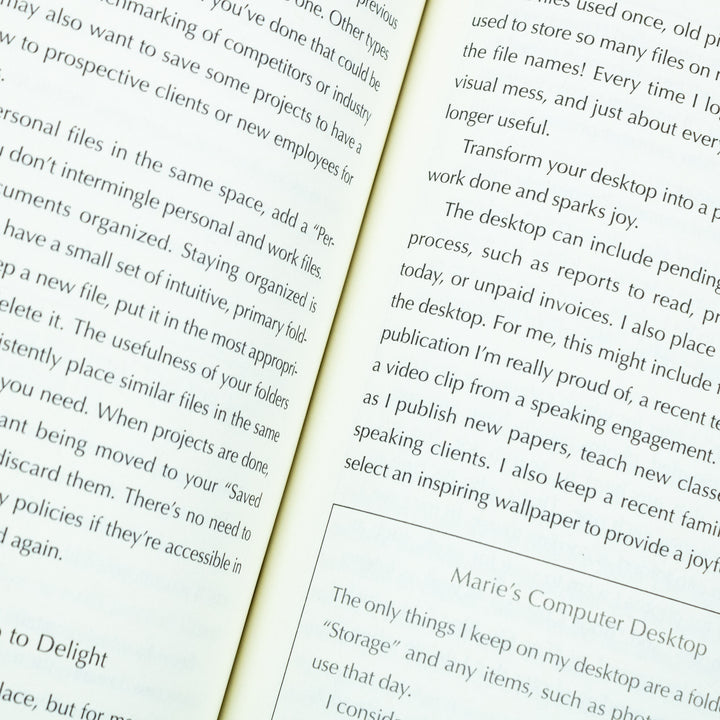 previous
one. Other types
nchmarking of competitors or industry
you've done that could be
may also want to save some projects to have a
w to prospective clients or new employees for
ersonal files in the same space, add a “Per-
u don't intermingle personal and work files.
cuments organized. Staying organized is
have a small set of intuitive, primary fold-
ep a new file, put it in the most appropri-
elete it. The usefulness of your folders
istently place similar files in the same
you need. When projects are done,
ant being moved to your “Saved
discard them. There's no need to
y policies if they're accessible in
d again.
to Delight
lace, but for
files used once, old
used to store so many files on
the file names! Every time I
visual mess, and just about every
longer useful.
Transform your desktop into a p
work done and sparks joy.
The desktop can include pending
process, such as reports to read, pr
today, or unpaid invoices. I also place
the desktop. For me, this might include
publication I'm really proud of, a recent te
a video clip from a speaking engagement.
as I publish new papers, teach new classe
speaking clients. I also keep a recent famil
select an inspiring wallpaper to provide a joyf
Marie's Computer Desktop
The only things I keep on my desktop are a fold
“Storage” and any items, such as phot
use that day.
I consid